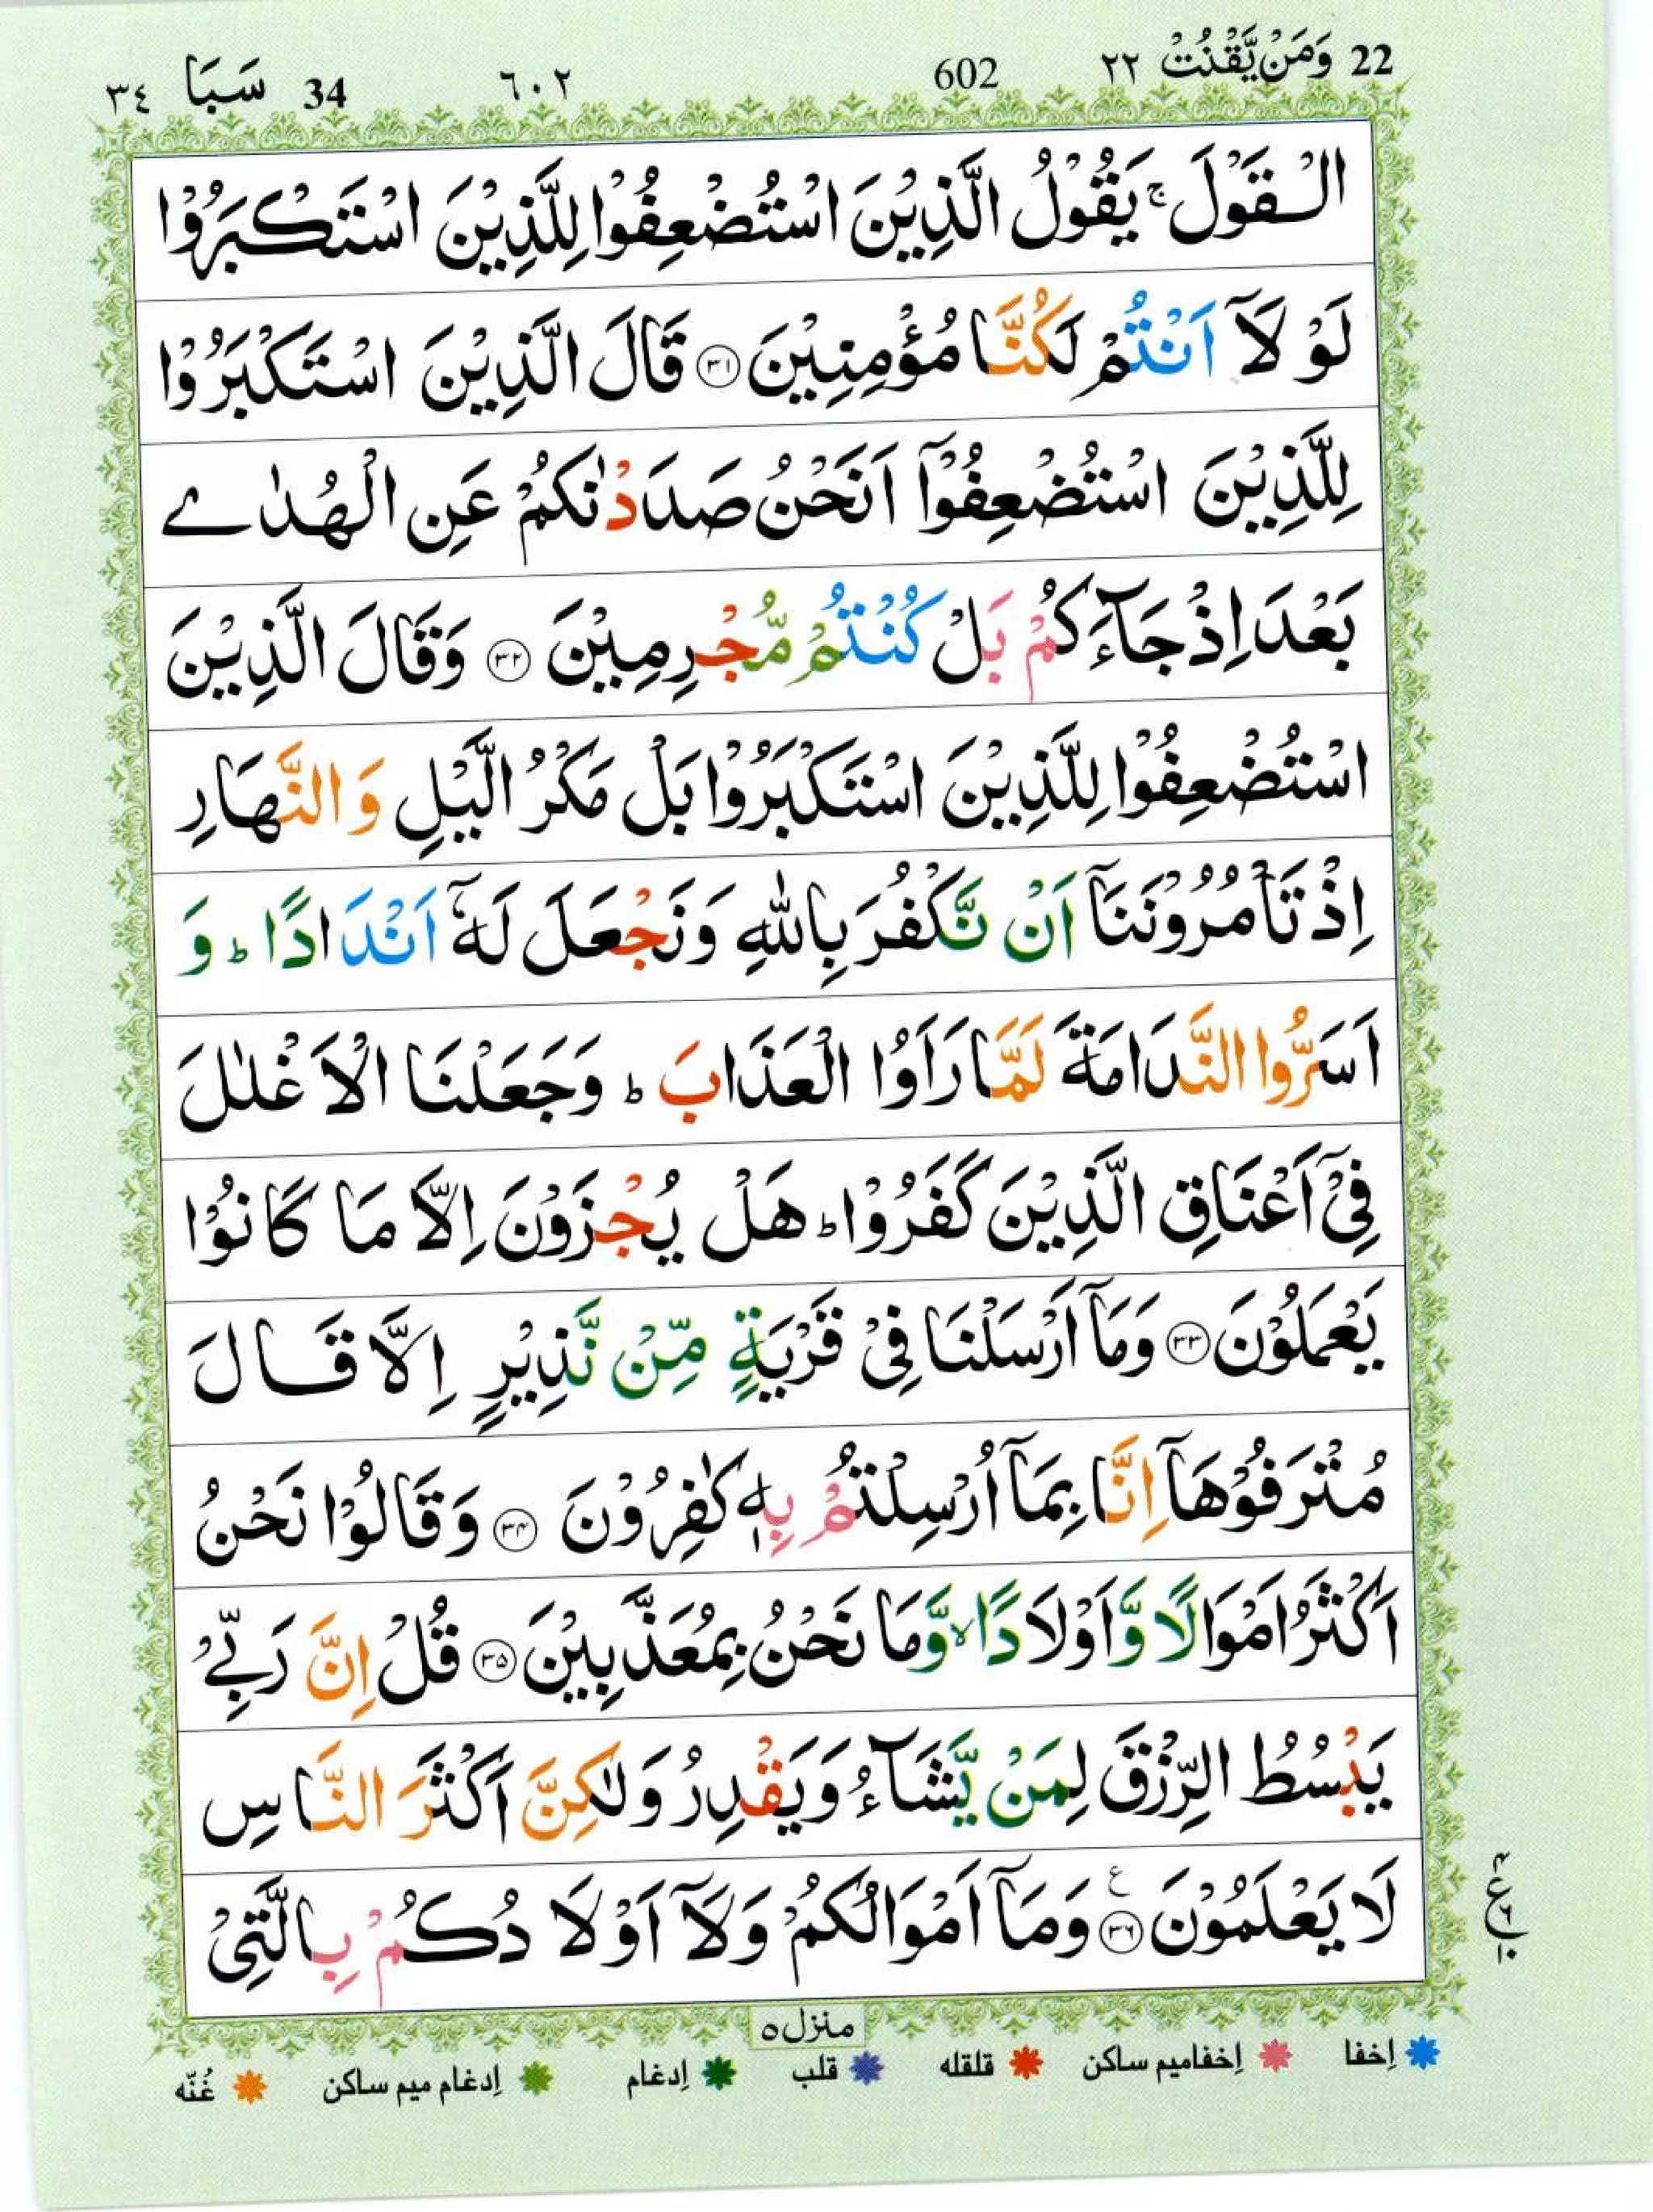 22 وَمَنْ يَّقْنُتْ ٢٢ 602 ٦٠٢ 34 سَبَا ٣٤
الْقَوْلَ ۚ يَقُوْلُ الَّذِيْنَ اسْتُضْعِفُوْا لِلَّذِيْنَ اسْتَكْبَرُوْا
لَوْ لَاۤ اَنْتُمْ لَكُنَّا مُؤْمِنِيْنَ ﴿٣١﴾ قَالَ الَّذِيْنَ اسْتَكْبَرُوْا
لِلَّذِيْنَ اسْتُضْعِفُوْۤا اَنَحْنُ صَدَدْنٰكُمْ عَنِ الْهُدٰى
بَعْدَ اِذْ جَآءَكُمْ بَلْ كُنْتُمْ مُّجْرِمِيْنَ ﴿٣٢﴾ وَقَالَ الَّذِيْنَ
اسْتُضْعِفُوْا لِلَّذِيْنَ اسْتَكْبَرُوْا بَلْ مَكْرُ الَّيْلِ وَالنَّهَارِ
اِذْ تَاْمُرُوْنَنَاۤ اَنْ نَّكْفُرَ بِاللّٰهِ وَنَجْعَلَ لَهٗۤ اَنْدَادًا ؕ وَ
اَسَرُّوا النَّدَامَةَ لَمَّا رَاَوُا الْعَذَابَ ؕ وَجَعَلْنَا الْاَغْلٰلَ
فِىْۤ اَعْنَاقِ الَّذِيْنَ كَفَرُوْا ؕ هَلْ يُجْزَوْنَ اِلَّا مَا كَانُوْا
يَعْمَلُوْنَ ﴿٣٣﴾ وَمَاۤ اَرْسَلْنَا فِىْ قَرْيَةٍ مِّنْ نَّذِيْرٍ اِلَّا قَالَ
مُتْرَفُوْهَاۤ اِنَّا بِمَاۤ اُرْسِلْتُمْ بِهٖ كٰفِرُوْنَ ﴿٣٤﴾ وَقَالُوْا نَحْنُ
اَكْثَرُ اَمْوَالًا وَّاَوْلَادًا ۙ وَّمَا نَحْنُ بِمُعَذَّبِيْنَ ﴿٣٥﴾ قُلْ اِنَّ رَبِّىْ
يَبْسُطُ الرِّزْقَ لِمَنْ يَّشَآءُ وَيَقْدِرُ وَلٰكِنَّ اَكْثَرَ النَّاسِ
لَا يَعْلَمُوْنَ ﴿٣٦﴾ ع وَمَاۤ اَمْوَالُكُمْ وَلَاۤ اَوْلَادُكُمْ بِالَّتِىْ
ع
منزل ٥
اِخفا اِخفامیم ساکن قلقله قلب اِدغام اِدغام میم ساکن غُنّه